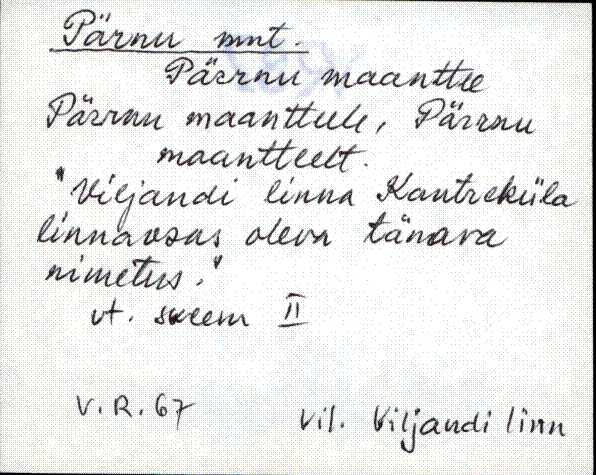 Pärnu mnt.
Päŕrnu maanttee
Päŕrnu maanttele, Päŕrnu
maantteelt.
"Viljandi linna Kantreküla
linnaosas oleva tänava
nimetus."
vt. skeem II
V.R.67
Vil. Viljandi linn